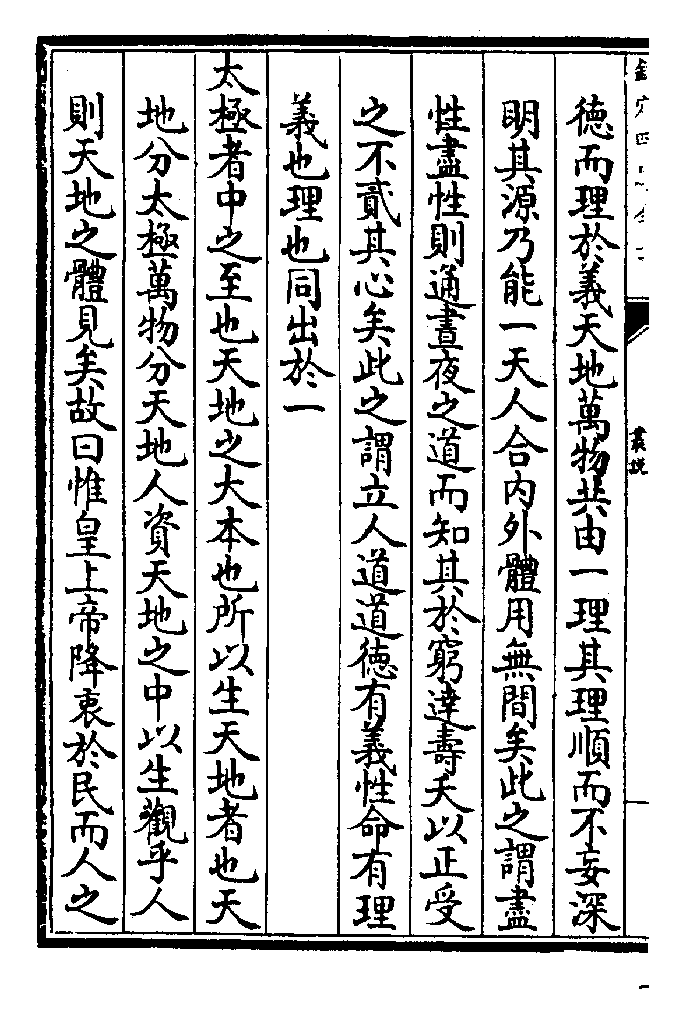 德而理於義天地萬物共由一理其理順而不妄深
明其源乃能一天人合内外體用無間矣此之謂盡
性盡性則通晝夜之道而知其於窮達壽夭以正受
之不貳其心矣此之謂立人道道德有義性命有理
義也理也同出於一
太極者中之至也天地之大本也所以生天地者也天
地分太極萬物分天地人資天地之中以生觀乎人
則天地之體見矣故曰惟皇上帝降衷於民而人之
叢説